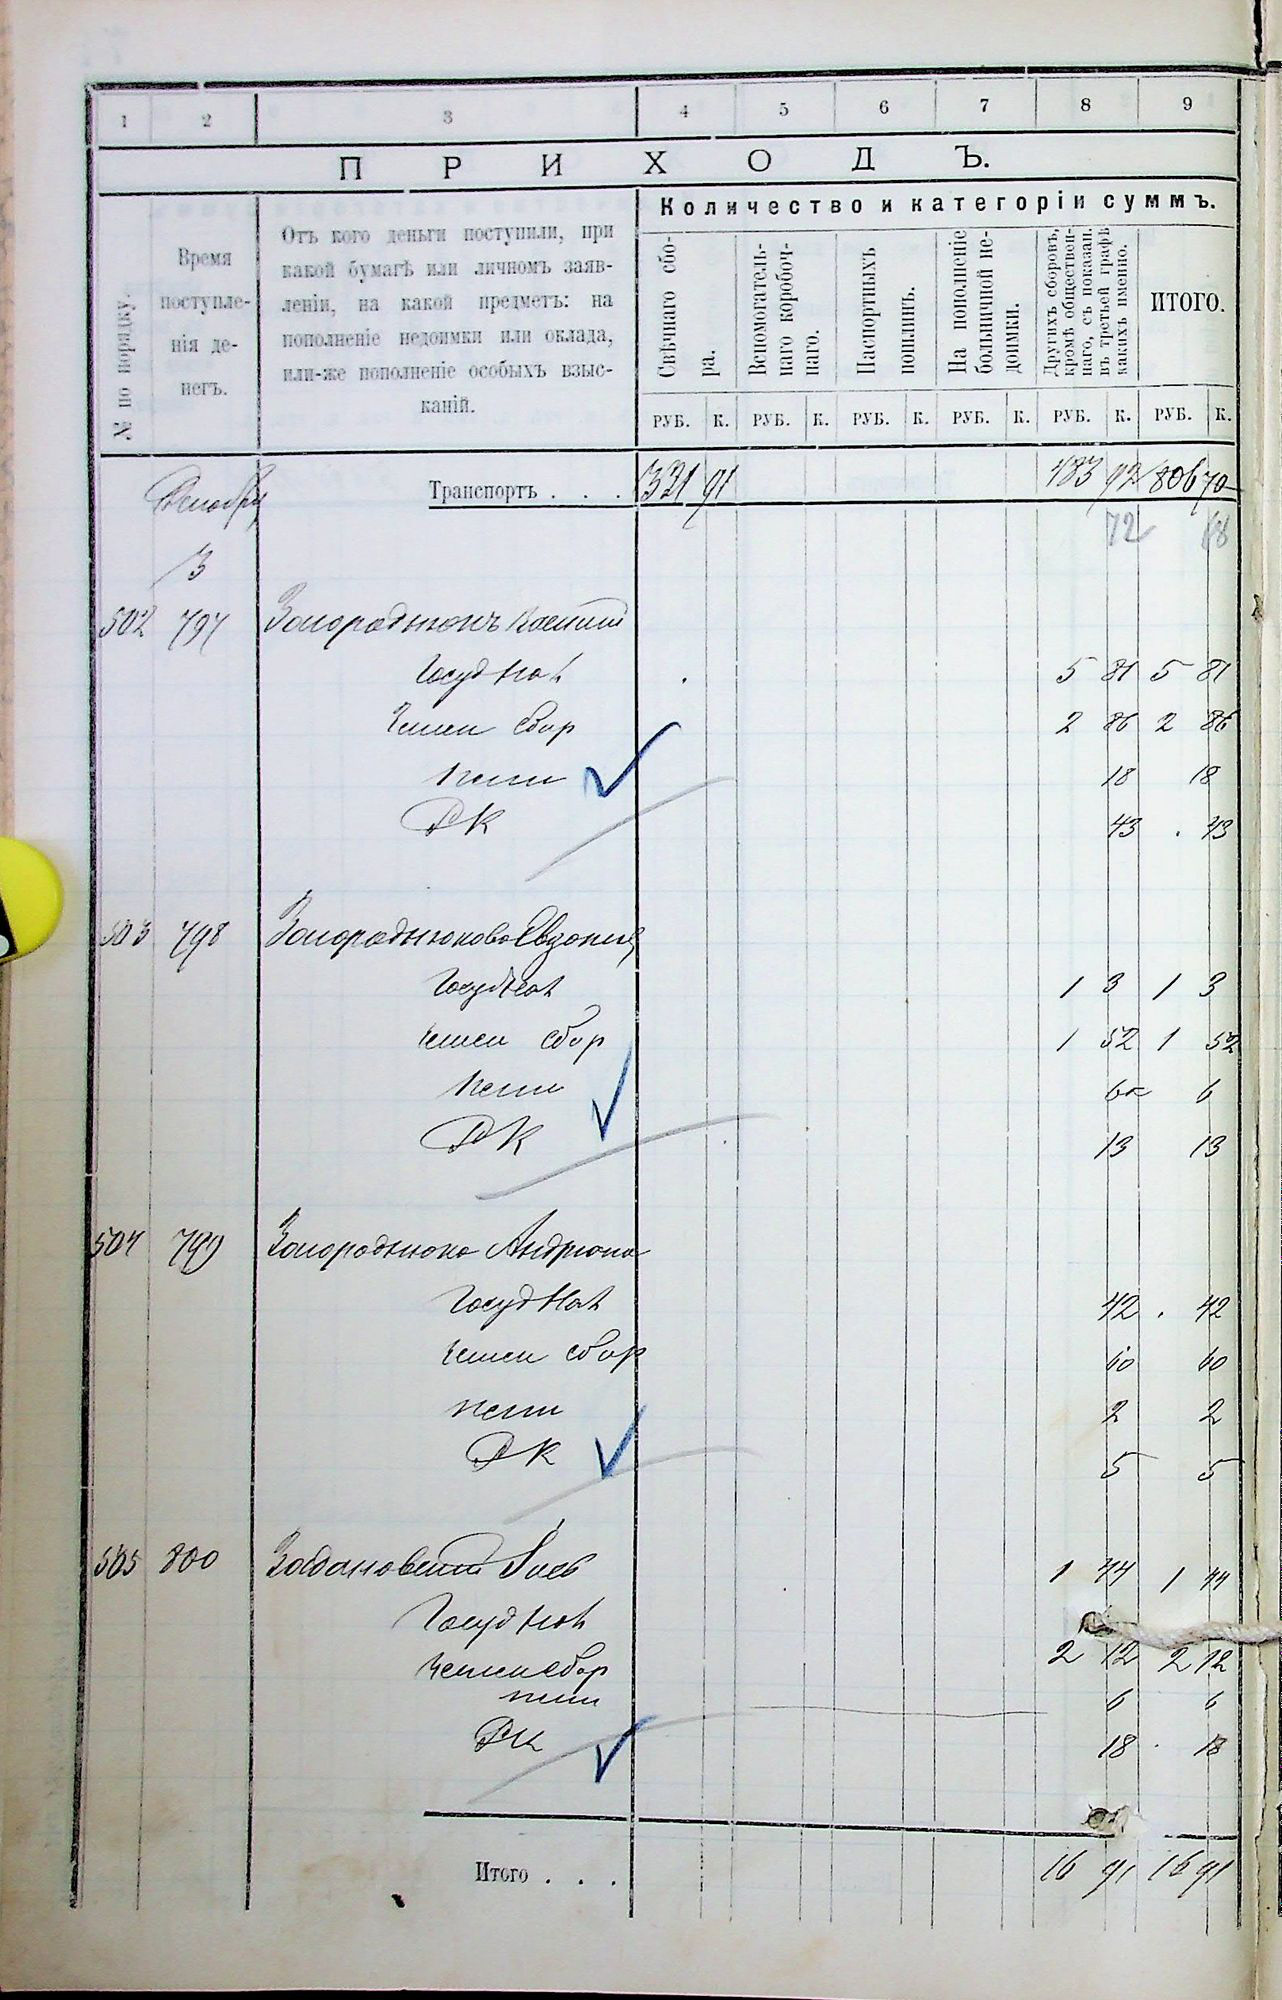 1 2 3 4 5 6 7 8 9
ПРИХОДЪ.
№ по порядку.
Время
поступле-
нія де-
негъ.
Отъ кого деньги поступили, при
какой бумагѣ или личномъ заяв-
леніи, на какой предметъ: на
пополненіе недоимки или оклада,
или-же пополненіе особыхъ взыс-
каній.
Количество и категоріи суммъ.
Свѣчнаго сбо-
ра.
Вспомогатель-
наго коробоч-
наго.
Паспортныхъ
пошлинъ.
На пополненіе
больничной не-
доимки.
Другихъ сборовъ,
кромѣ обществен-
наго, съ показан.
въ третьей графѣ
какихъ именно.
ИТОГО.
РУБ. К. РУБ. К. РУБ. К. РУБ. К. РУБ. К. РУБ. К.
Транспортъ . . . 321 91 483 92 806 70
72
3
502 797
Госуд Нал 5 81 5 81
Земск Сбор 2 86 2 86
Пени 18 18
РК 43 . 43
503 798
Госуд Нал 1 3 1 3
Земск сбор 1 52 1 52
Пени 6 6
РК 13 13
504 799
Госуд Нал 42 . 42
Земск сбор 60 60
Пени 2 2
РК 5 5
505 800 1 44 1 44
Госуд Нал
Земск сбор 2 12 2 12
пени 6 6
РК 18 . 18
Итого . . . 16 91 16 91